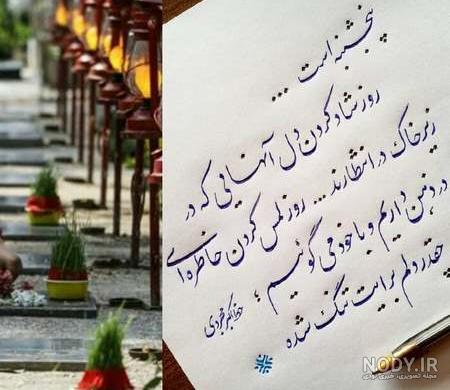 پنجشنبه است ...
روز شاد کردن دل آنهایی که در
زیر خاک در انتظارند ... روز لمس کردن خاطره‌ای
در ذهن داریم و با خود می گوئیم ؛
چقدر دلم برایت تنگ شده
NODY.IR
مجله تصویری، خبری نودی